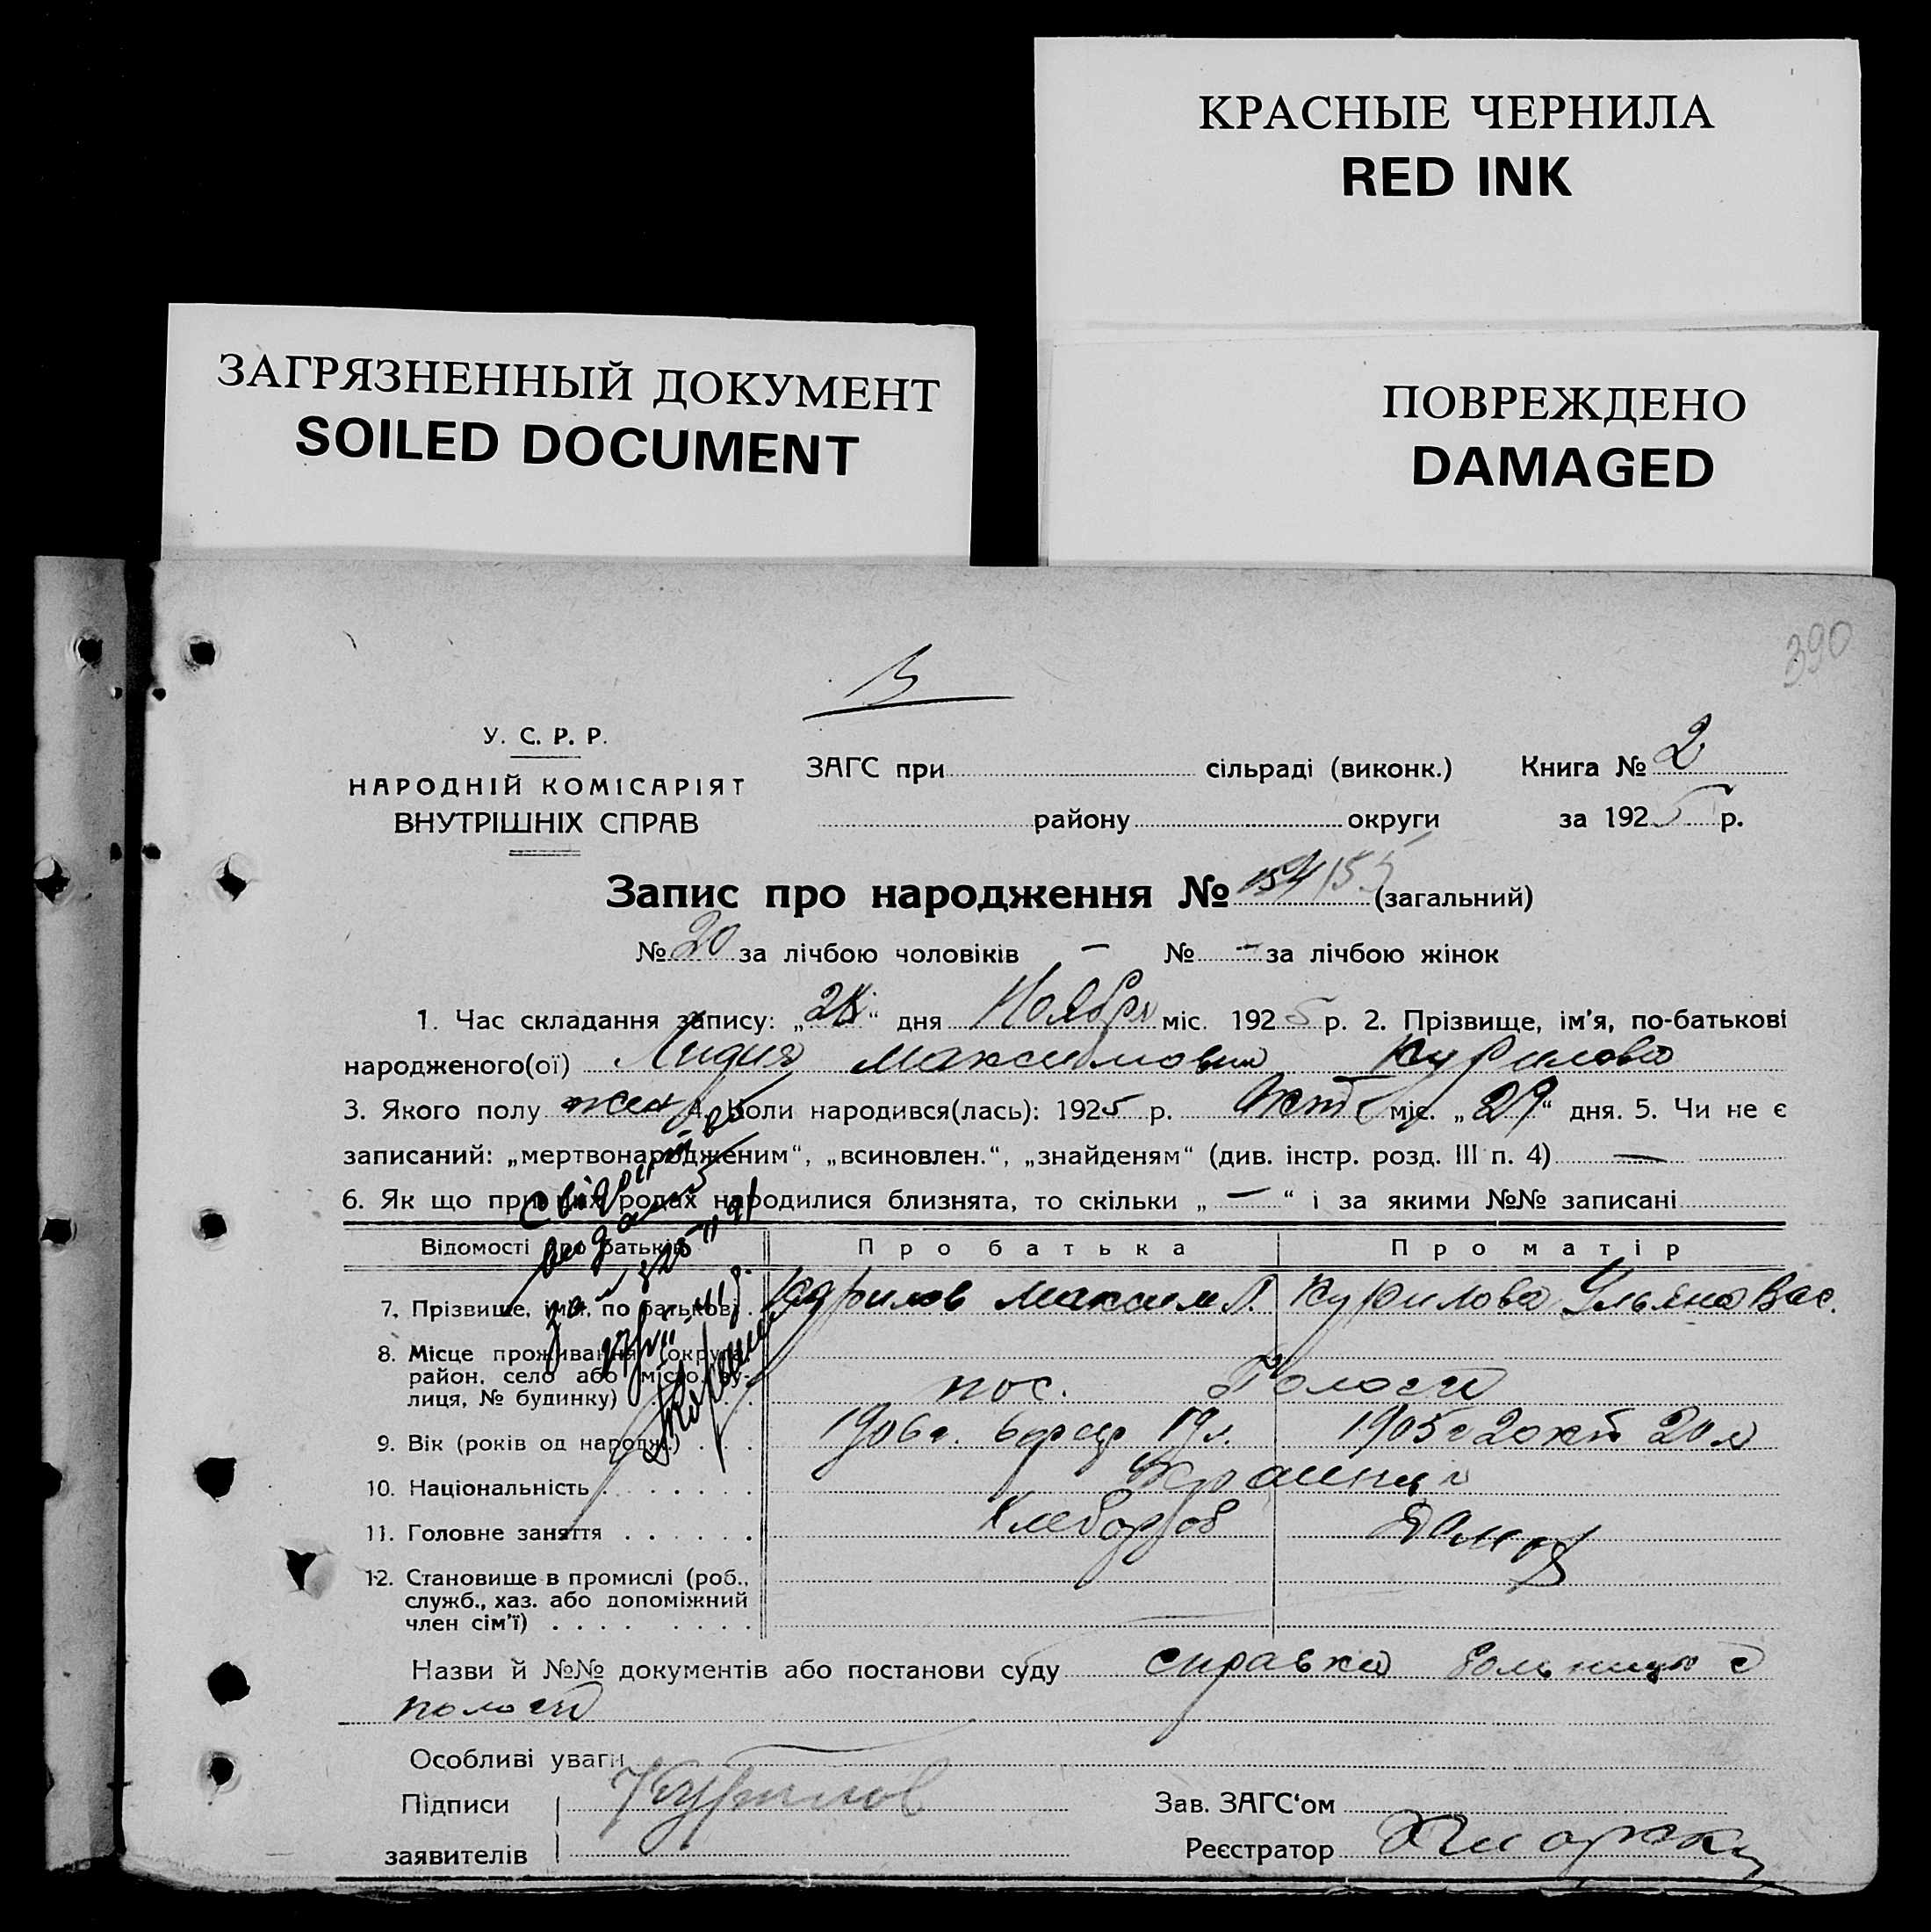 КРАСНЫЕ ЧЕРНИЛА
RED INK
ЗАГРЯЗНЕННЫЙ ДОКУМЕНТ
SOILED DOCUMENT
ПОВРЕЖДЕНО
DAMAGED
390
У. С. Р. Р.
НАРОДНІЙ КОМІСАРІЯТ
ВНУТРІШНІХ СПРАВ
ЗАГС при сільраді (виконк.) Книга № 2
району округи за 1925 р.
Запис про народження № 154 155 (загальний)
№ 20 за лічбою чоловіків — № — за лічбою жінок
1. Час складання запису: „ “ дня Ноября міс. 1925 р. 2. Прізвище, ім'я, по-батькові
народженого(ої) Лидия Максимовна Курилова
3. Якого полу жен 4. Коли народився(лась): 1925 р. Окт міс. „29“ дня. 5. Чи не є
записаний: „мертвонародженим“, „всиновлен.“, „знайденям“ (див. інстр. розд. III п. 4) —
6. Як що при цих родах народилися близнята, то скільки „ — “ і за якими №№ записані
Відомості про батьків Про батька Про матір
7. Прізвище, ім'я, по батькові Курилов Максим Л. Курилова Ульяна Вас.
8. Місце проживання (округа, район, село або місто, вулиця, № будинку) пос. Пологи
9. Вік (років од народж.) 1906 г. 6 19 л. 1905 г 2 окт 20 л
10. Національність Украинцы
11. Головне заняття Хлебороб Домох
12. Становище в промислі (роб.,
служб., хаз. або допоміжний
член сім'ї)
Назви й №№ документів або постанови суду справка больницы с
пологи
Особливі уваги
Підписи Курилов Зав. ЗАГС'ом
заявителів Реєстратор